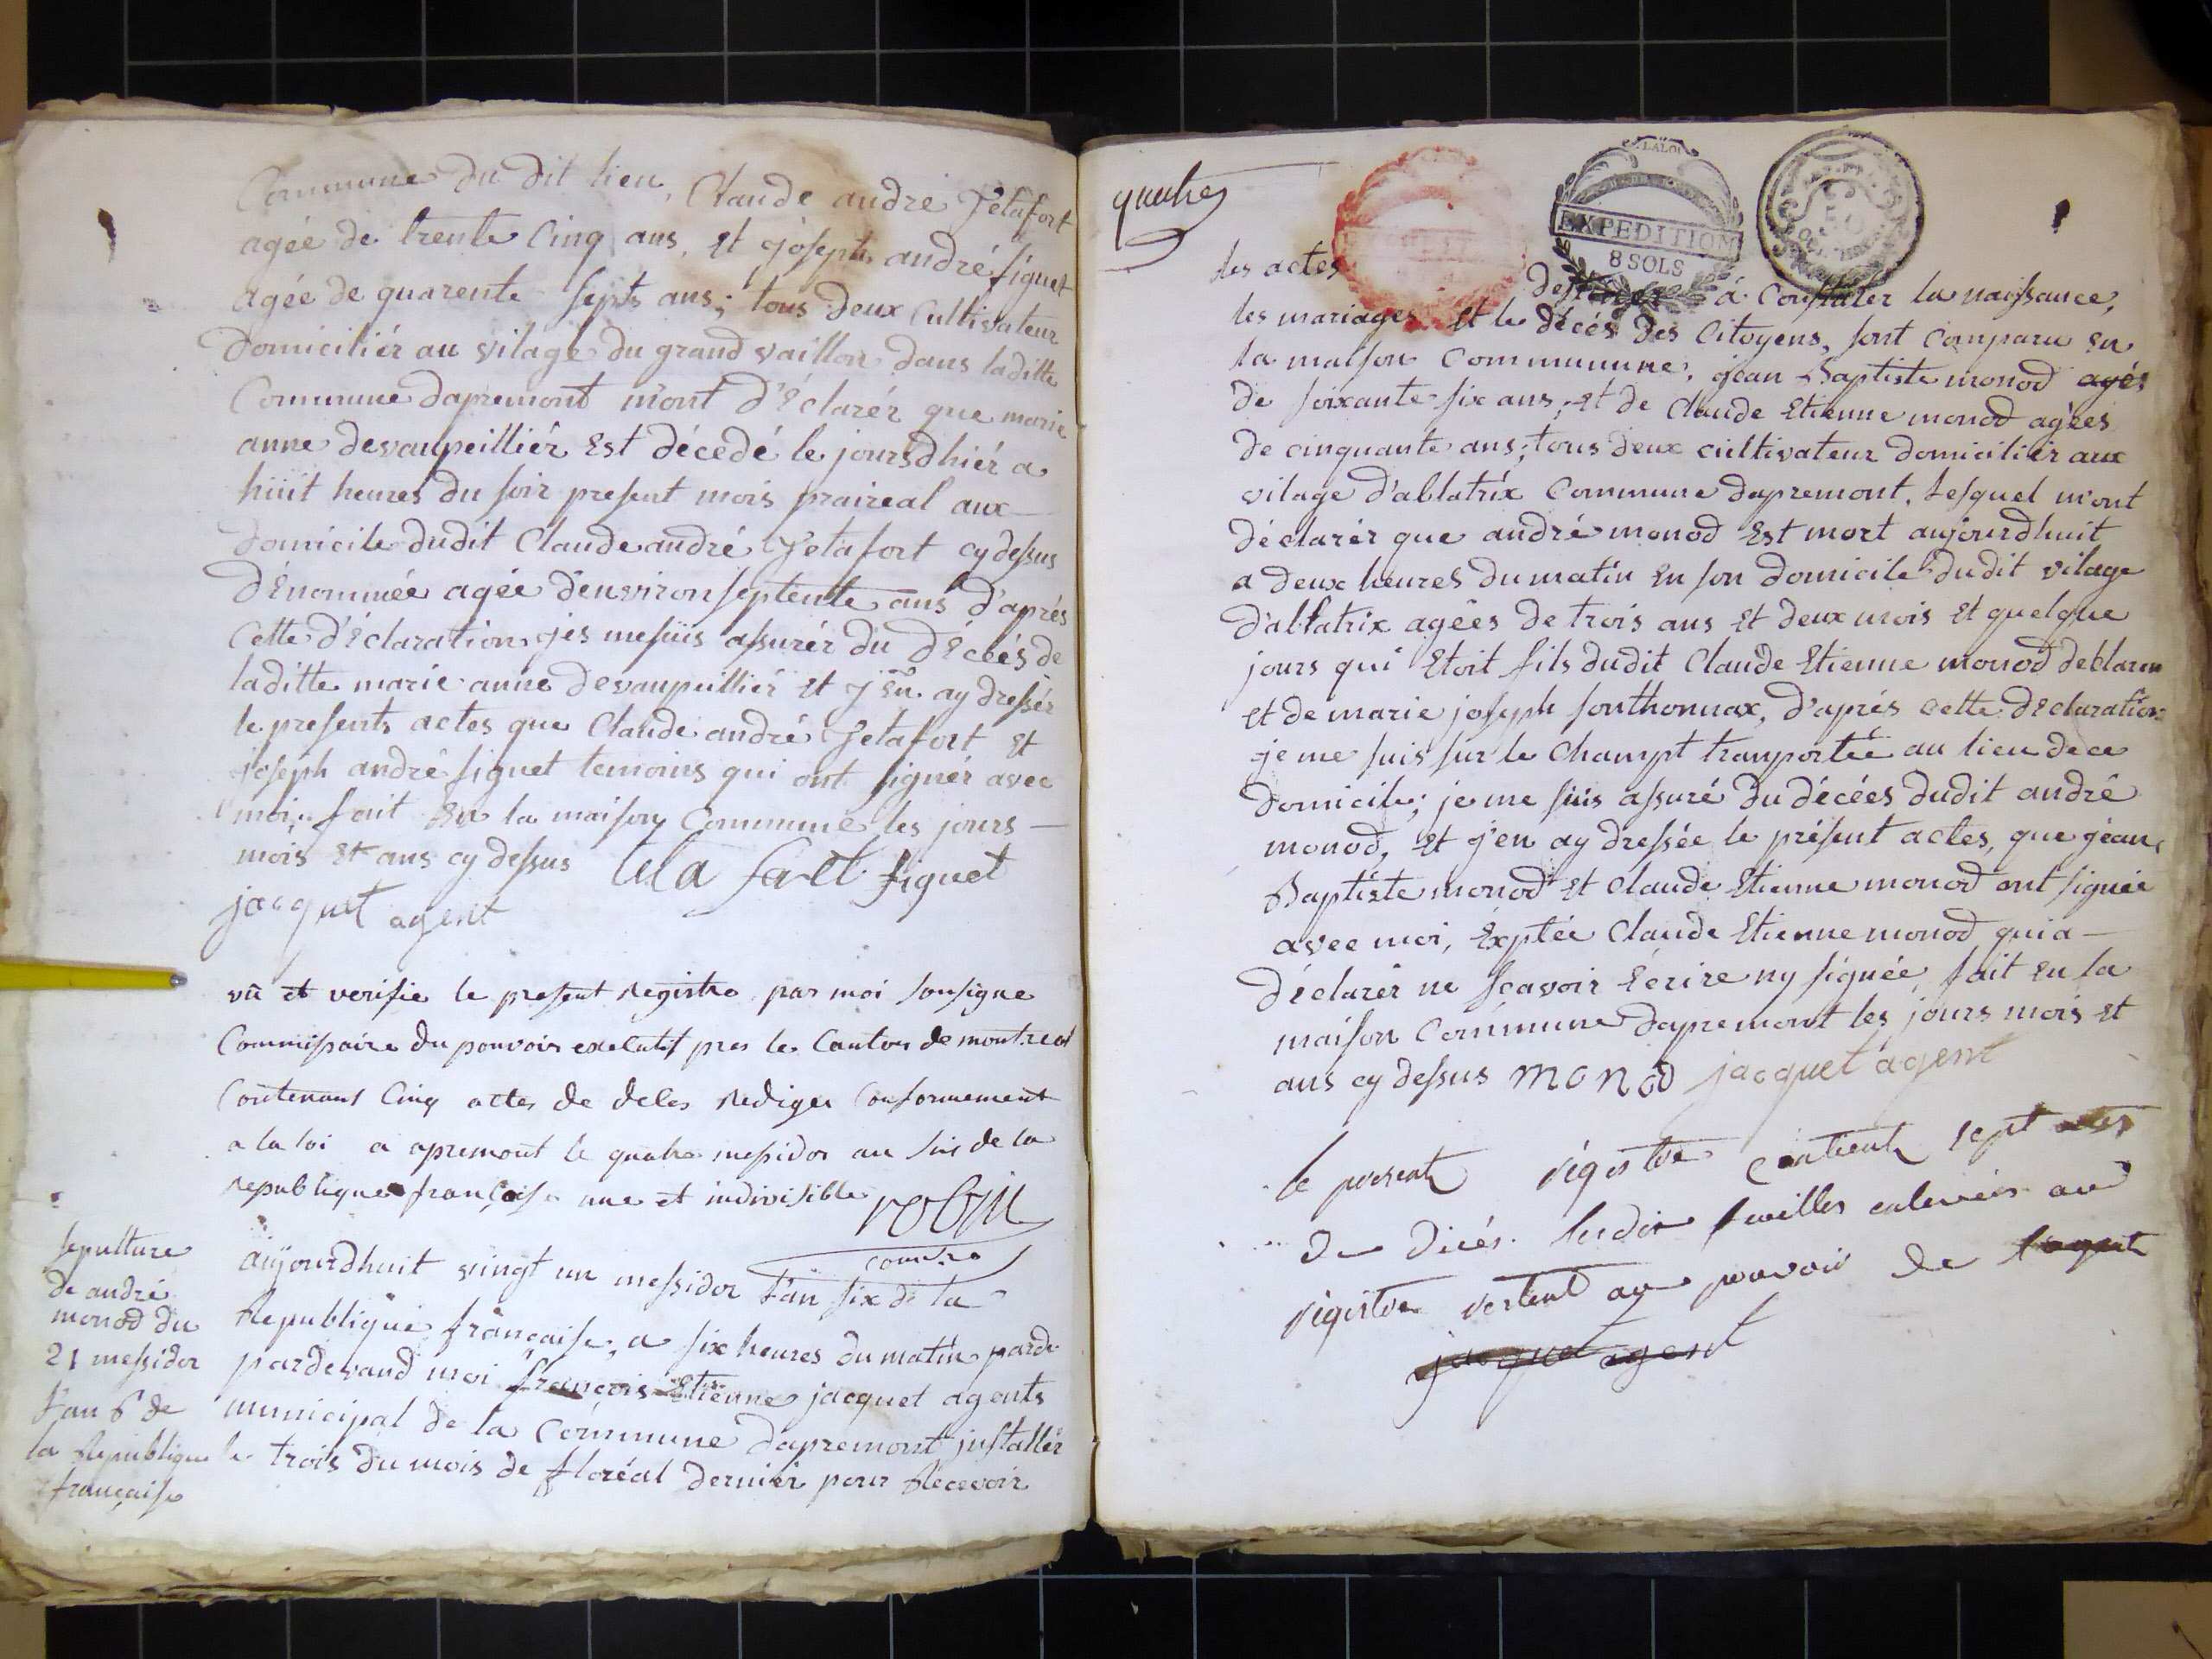 Commune du dit lieu, Claude andré Jetafort
agée de trente Cinq ans, et joseph andré figuet
agée de quarente sept ans; tous deux Cultivateur
domiciliér au vilage du grand vaillon dans laditte
Commune dapremont m'ont d'éclarér que marie
anne devaupeilliér est décedé le jours dhiér a
huit heures du soir present mois praireal aux
domicile dudit Claude andré Jetafort cy dessus
dénommée agée denviron septente ans d'aprés
Cette d'éclaration jes mesuis assurér du décés de
laditte marie anne devaupeilliér et j'en ay dressér
le presents actes que Claude andré Jetafort et
joseph andré figuet temoins qui ont signér avec
moi, fait en la maison Commune les jours
mois et ans cy dessus figuet
jacquet agent
vû et verifie le present registre par moi sousigne
Commissaire du pouvoir executif pres le Canton de montreal
Contenant Cinq actes de deces rediges Conformement
a la loi a apremont le quatre messidor an six de la
republique française une et indivisible robin
Sepulture
de andré
monod du
21 messidor
l'an 6 de
la Republique
française
aujourdhuit vingt un messidor l'an six de la
Republique française, a six heures du matin parde
pardevand moi françois Etienne jacquet agents
municipal de la Commune dapremont installér
le trois du mois de floréal dernier pour Recevoir
quatre
LA LOI
EXPEDITION
8 SOLS
50
les actes destinés à Constater la naissance,
les mariages et le décés des Citoyens, sont Comparu en
la maison Commumune, jean Baptiste monod agés
de soixante six ans, et de Claude Etienne monod agées
de cinquante ans; tous deux cultivateur domiciliér aux
vilage d'ablatrix Commune dapremont, Lesquel m'ont
déclarér que andré monod est mort aujourdhuit
a deux heures du matin en son domicile dudit vilage
d'ablatrix agées de trois ans et deux mois et quelque
jours qui etoit fils dudit Claude Etienne monod declaren
et de marie joseph sonthonnax, d'aprés cette déclaration
je me suis sur le Champt tranportée au lieu de ce
domicile; je me suis assuré du décées dudit andré
monod, et j'en ay dressée le présent actes, que jean
Baptiste monod et Claude Etienne monod ont signée
avec moi, éxptée Claude Etienne monod qui a
déclarér ne scavoir écrire ny signée, fait en la
maison Commune dapremont les jours mois et
ans cy dessus monod jacquet agent
le present régistre contient sept
de décés. feuilles au
régistre au pouvoir de l'agent
jacquet agent